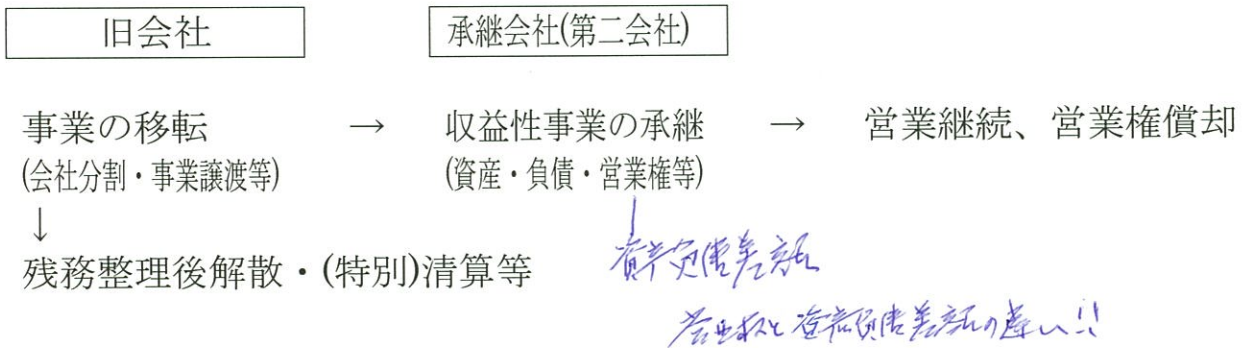 旧会社 承継会社(第二会社)
事業の移転 → 収益性事業の承継 → 営業継続、営業権償却
(会社分割・事業譲渡等) (資産・負債・営業権等)
↓
残務整理後解散・(特別)清算等
資産負債差額
営業权と資産負債差額の違い!!